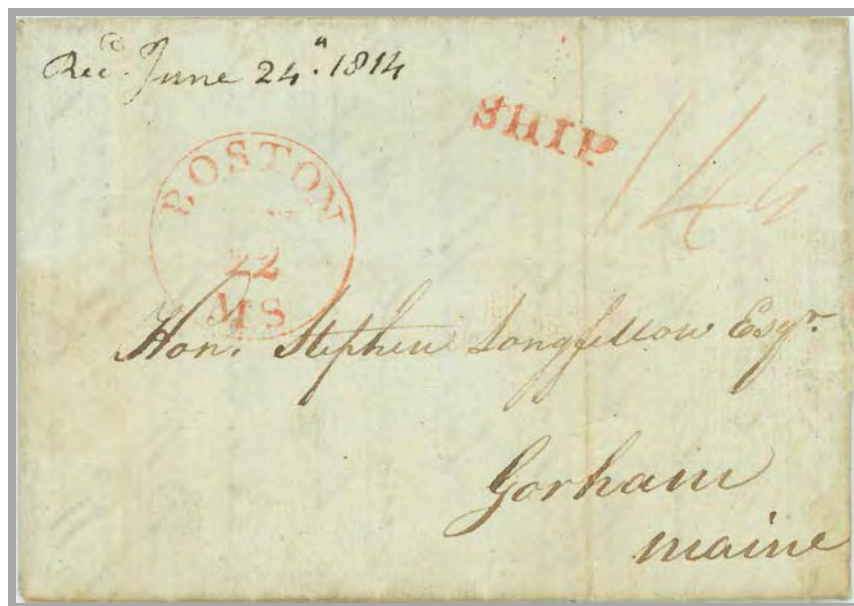 Recd. June 24. 1814
SHIP
14
BOSTON
22
MS
Hon. Stephen Longfellow Esqr.
Gorham
maine